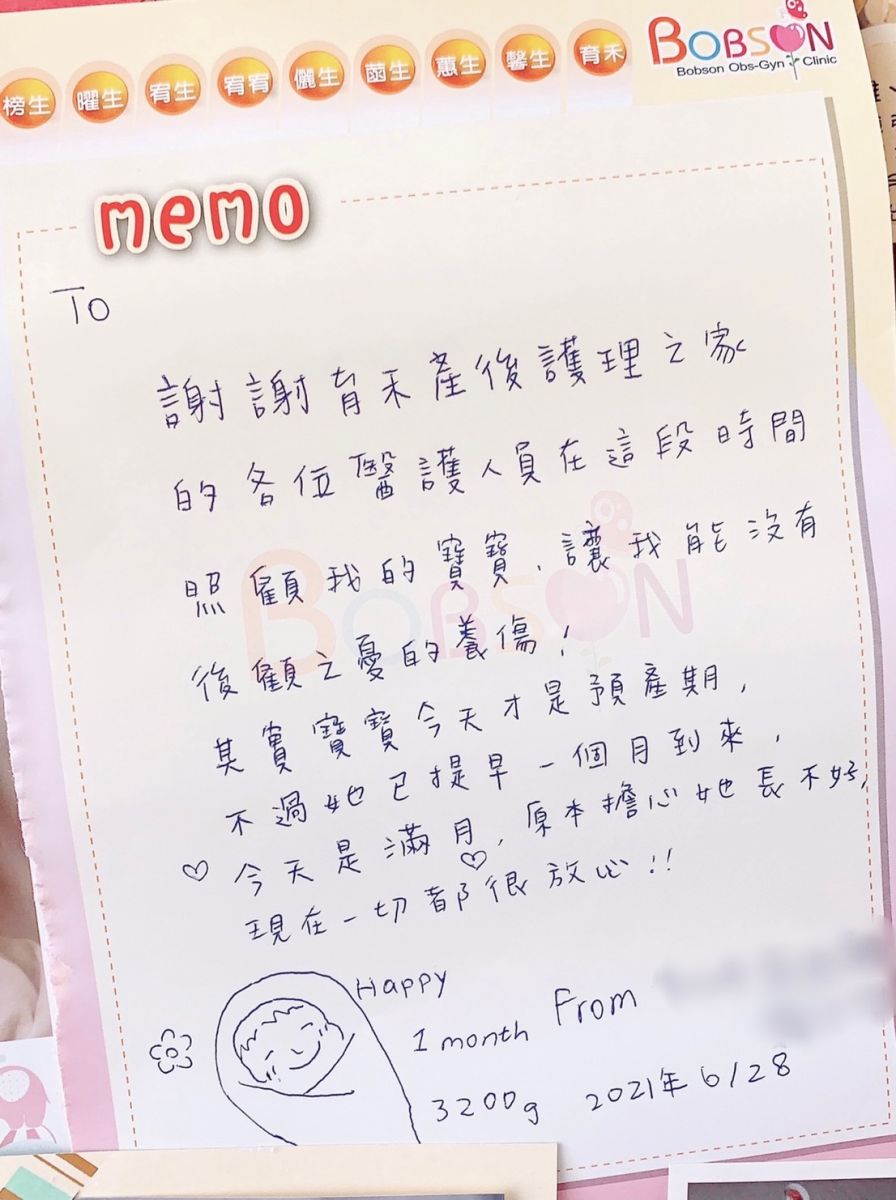 BOBSON
Bobson Obs-Gyn Clinic
榜生 曜生 宥生 宥宥 儷生 菡生 蕙生 馨生 育禾
memo
To
謝謝育禾產後護理之家
的各位醫護人員在這段時間
照顧我的寶寶,讓我能沒有
後顧之憂的養傷!
其實寶寶今天才是預產期,
不過她已提早一個月到來,
♡ 今天是滿月,原本擔心她長不好,
現在一切都很放心!!
BOBSON
Happy
1 month From
3200g 2021年6/28